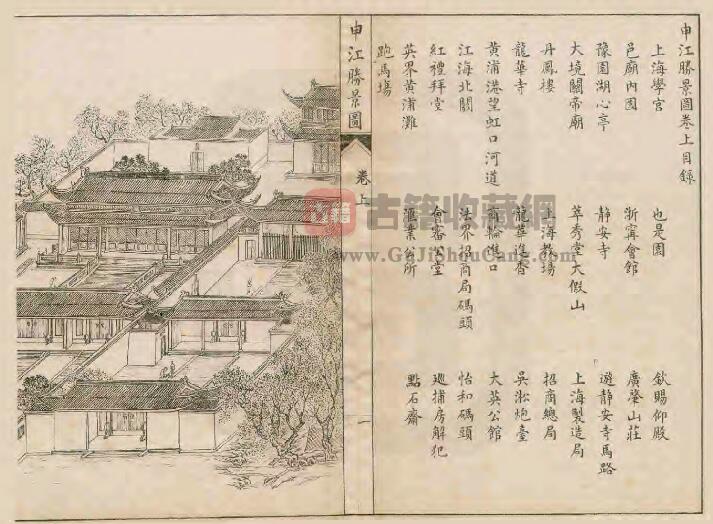 申江勝景圖卷上目錄
上海學宮　也是園　欽賜仰殿
邑廟內園　浙寧會館　廣肇山莊
豫園湖心亭　靜安寺　遊靜安寺馬路
大境關帝廟　萃秀堂大假山　上海製造局
丹鳳樓　上海教場　招商總局
龍華寺　龍華進香　吳淞炮臺
黃浦港望虹口河道　商輪進口　大英公館
江海北關　法界招商局碼頭　怡和碼頭
紅禮拜堂　會審公堂　巡捕房解犯
英界黃浦灘　滙業公所　點石齋
跑馬場
申江勝景圖
卷上
一
古籍
古籍收藏網
www.GuJiShouCang.com